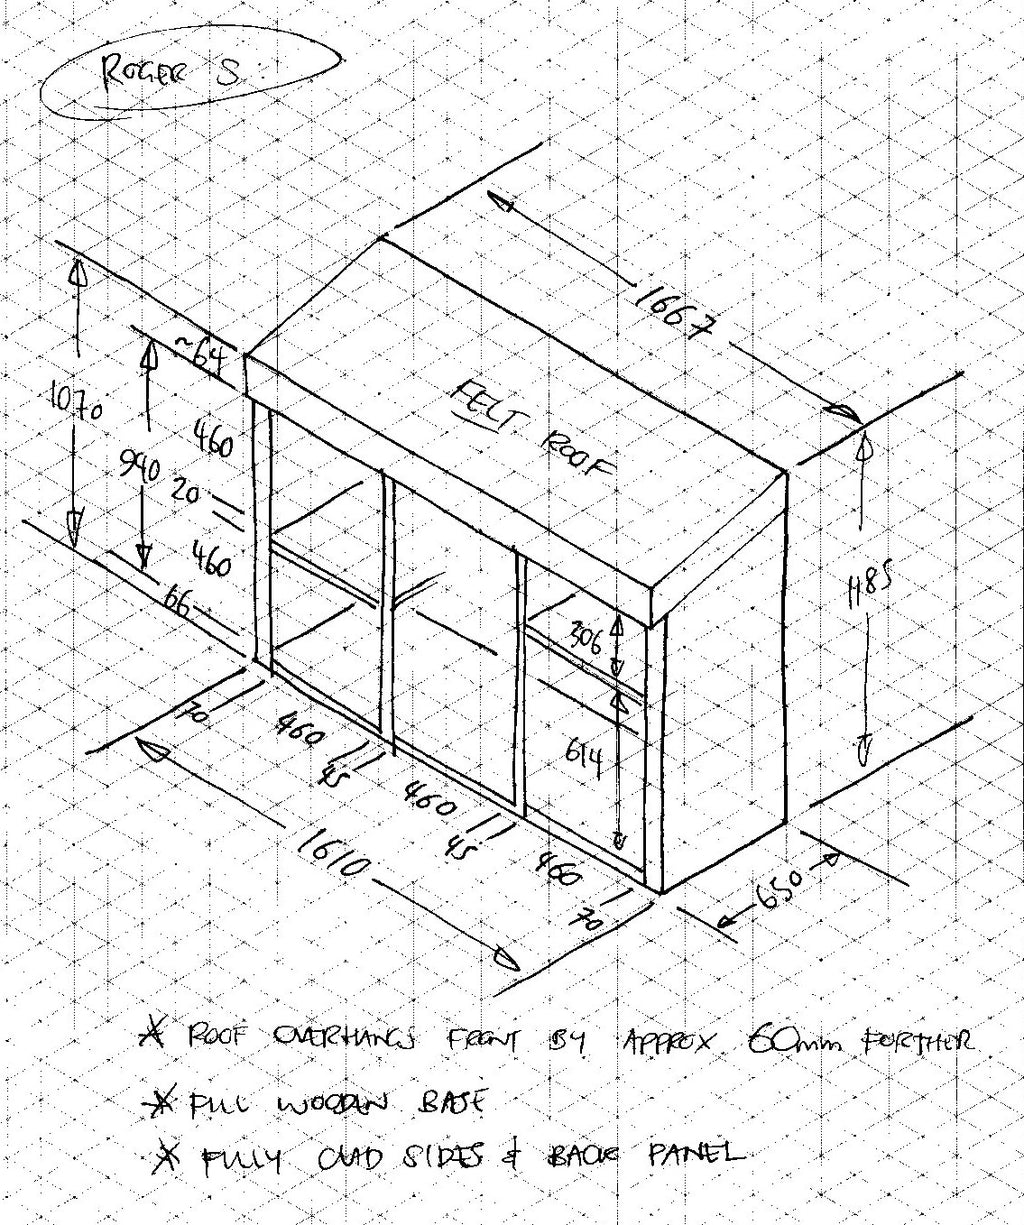 ROGER S.
1667
~64
1070
460
FELT ROOF
940
20
460
1185
66
306
70
460
614
45
460
1610
45
460
650
70
* ROOF OVERHANGS FRONT BY APPROX 60mm FURTHER
* FULL WOODEN BASE
* FULLY CLAD SIDES & BACK PANEL